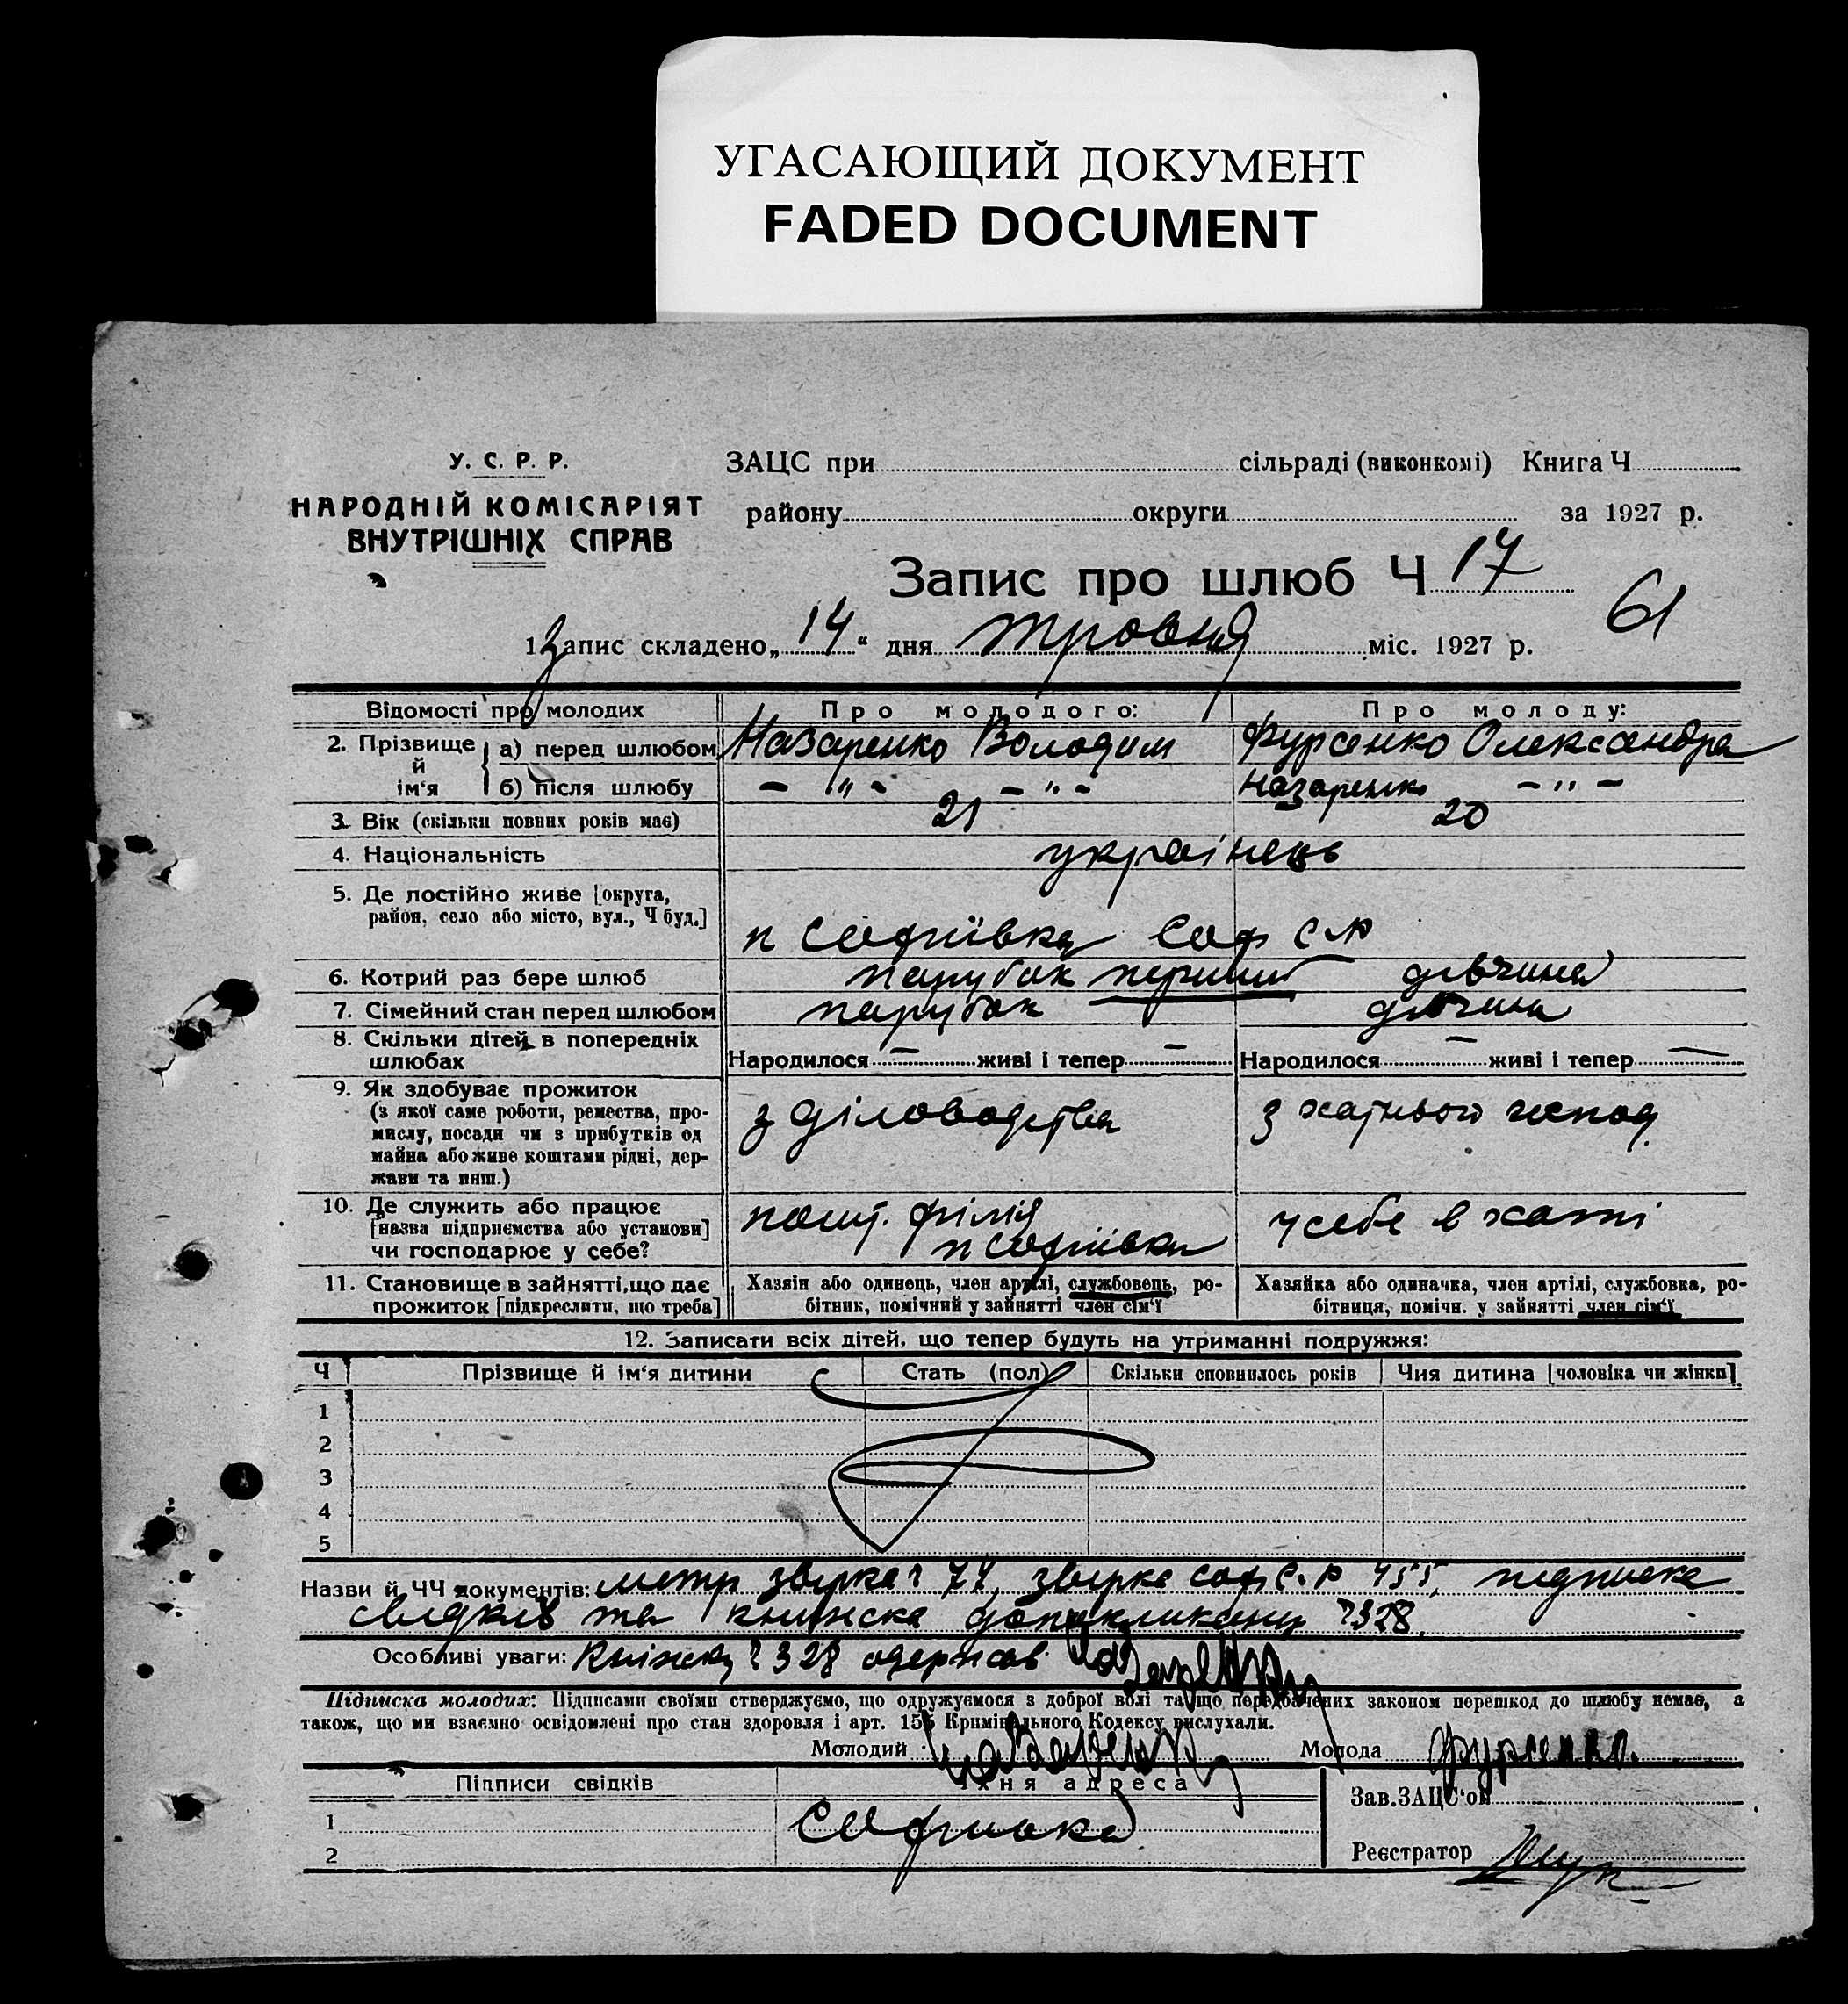 УГАСАЮЩИЙ ДОКУМЕНТ
FADED DOCUMENT
У. С. Р. Р.
НАРОДНІЙ КОМІСАРІЯТ
ВНУТРІШНІХ СПРАВ
ЗАЦС при сільраді (виконкомі) Книга Ч
району округи за 1927 р.
Запис про шлюб Ч 17
61
1 Запис складено „14“ дня травня міс. 1927 р.
Відомості про молодих Про молодого: Про молоду:
2. Прізвище й ім‘я а) перед шлюбом Назаренко Володим Фурсенко Олександра
б) після шлюбу — „ — — „ — Назаренко — „ —
3. Вік (скільки повних років має) 21 20
4. Національність українець
5. Де постійно живе [округа,
район, село або місто, вул., Ч буд.]
п Софіївка Соф с/р
6. Котрий раз бере шлюб парубок перший дівчина
7. Сімейний стан перед шлюбом парубок дівчина
8. Скільки дітей в попередніх
шлюбах Народилося — живі і тепер — Народилося — живі і тепер —
9. Як здобуває прожиток
(з якої саме роботи, ремества, про-
мислу, посади чи з прибутків од
майна або живе коштами рідні, дер-
жави та инш.)
з діловодства з хатнього господ.
10. Де служить або працює
[назва підприємства або установи]
чи господарює у себе?
пошт. філія
п Софіївка
у себе в хаті
11. Становище в зайнятті, що дає
прожиток [підкреслити, що треба]
Хазяін або одинець, член артілі, службовець, ро-
бітник, помічний у зайнятті член сім‘ї
Хазяйка або одиначка, член артілі, службовка, ро-
бітниця, помічн. у зайнятті член сім‘ї
12. Записати всіх дітей, що тепер будуть на утриманні подружжя:
Ч Прізвище й ім‘я дитини Стать (пол) Скільки сповнилось років Чия дитина [чоловіка чи жінки]
1
2
3
4
5
Назви й ЧЧ документів: метр звірка 74, звірка соф с.р 455, підписка
свідків та книжка 328.
Особливі уваги: Книжку 328 одержав Назаренко
Підписка молодих: Підписами своїми стверджуємо, що одружуємося з доброї волі та що передбачених законом перешкод до шлюбу немає, а
також, що ми взаємно освідомлені про стан здоровля і арт. 155 Кримінального Кодексу вислухали.
Молодий Назаренко Молода Фурсенко.
Підписи свідків Їхня адреса
Зав. ЗАЦС‘ом
1 Софіївка
2
Реєстратор